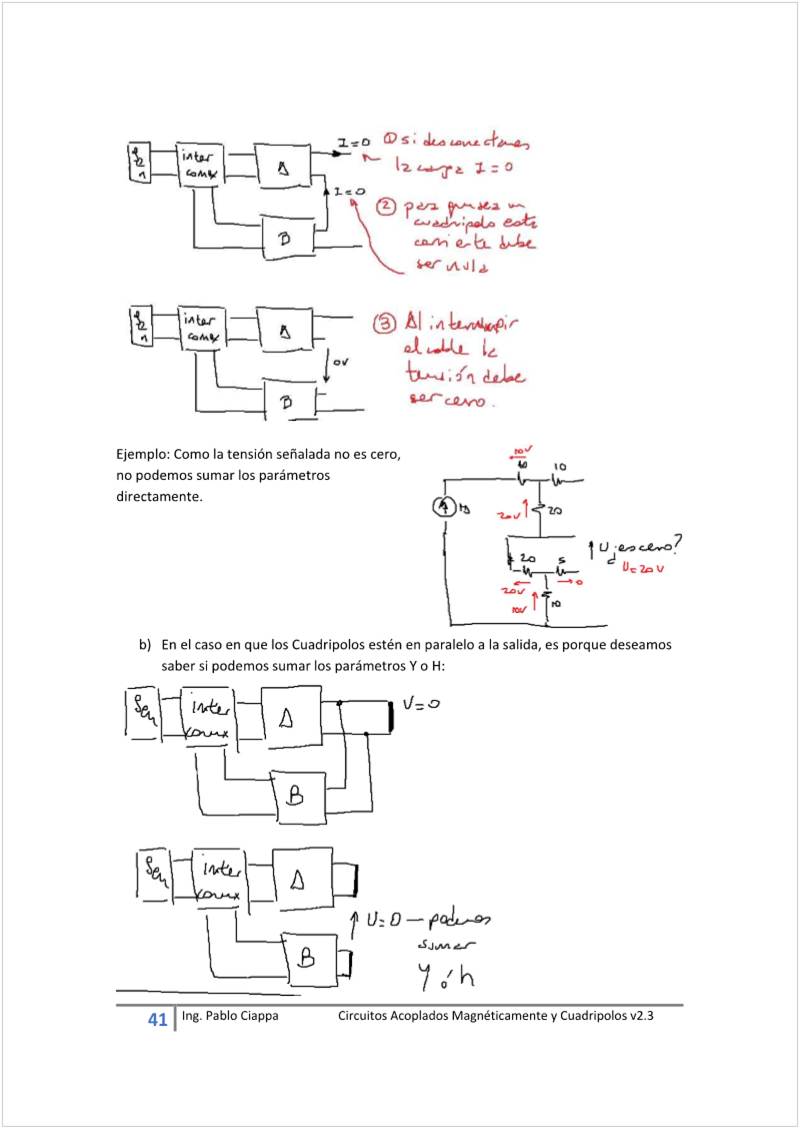 I=0
① si desconectamos
la carga I=0
gen
inter
conex
A
I=0
② para que sea un
cuadripolo esta
corriente debe
ser nula
B
gen
inter
conex
A
③ Al interrumpir
el cable la
tensión debe
ser cero.
0V
B
Ejemplo: Como la tensión señalada no es cero,
no podemos sumar los parámetros
directamente.
10V
10
10
1A
20V
20
20
5
U ¿es cero?
U=20V
20V
0
10V
10
b) En el caso en que los Cuadripolos estén en paralelo a la salida, es porque deseamos
saber si podemos sumar los parámetros Y o H:
Gen
inter
conex
A
V=0
B
Gen
inter
conex
A
U=0 — podemos
sumar
Y ó h
B
41 Ing. Pablo Ciappa Circuitos Acoplados Magnéticamente y Cuadripolos v2.3